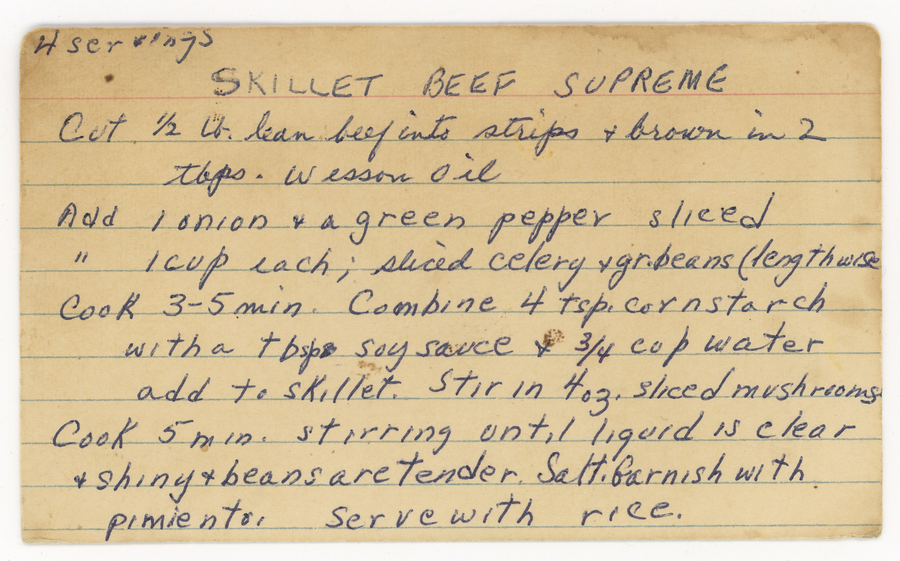 4 servings
SKILLET BEEF SUPREME
Cut 1/2 lb. lean beef into strips & brown in 2
tbps. Wesson Oil
Add 1 onion & a green pepper sliced
" 1 cup each; sliced celery & gr. beans (lengthwise
Cook 3-5 min. Combine 4 tsp. cornstarch
with a tbsps soy sauce & 3/4 cup water
add to skillet. Stir in 4 oz. sliced mushrooms
Cook 5 min. stirring until liquid is clear
& shiny & beans are tender. Salt. Garnish with
pimiento. Serve with rice.